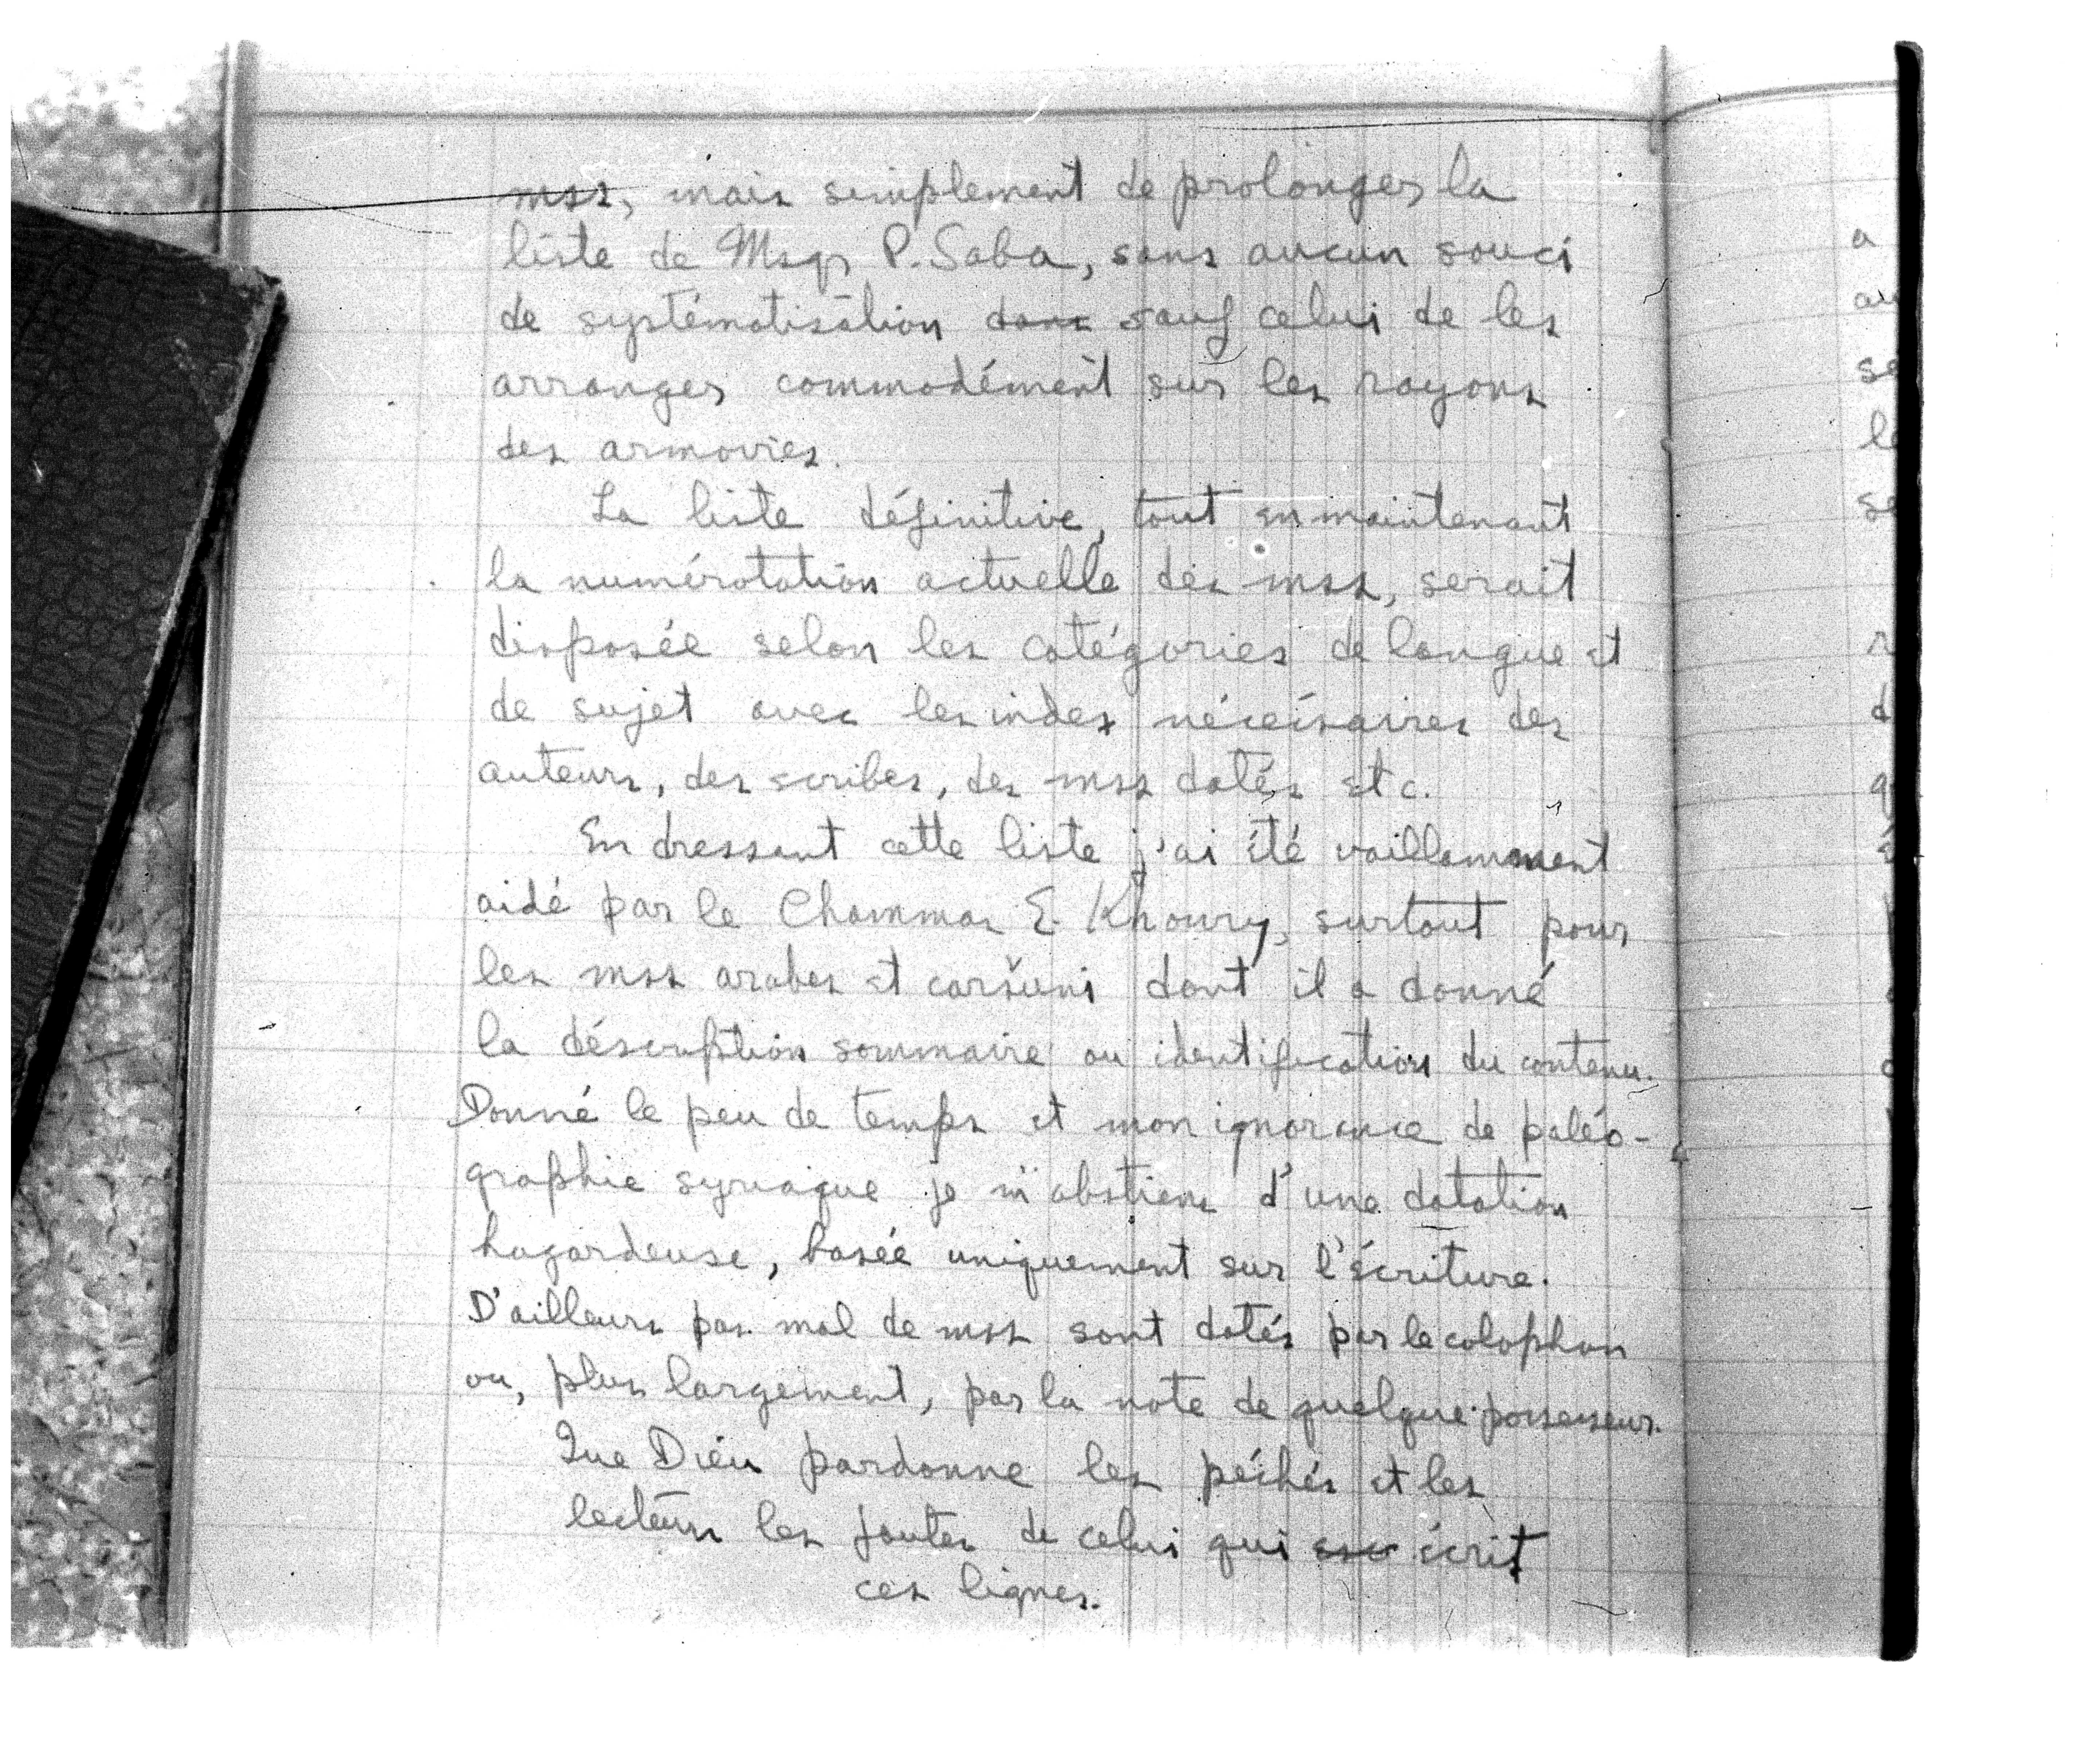 mss, mais simplement de prolonger la
liste de Msgr P. Saba, sans aucun souci
de systématisation dans sauf celui de les
arranger commodément sur les rayons
des armoires.
La liste définitive, tout en maintenant
la numérotation actuelle des mss, serait
disposée selon les catégories de langue et
de sujet avec les index nécéssaires des
auteurs, des scribes, des mss datés etc.
En dressant cette liste j'ai été vaillamment
aidé par le Chammas E. Khoury, surtout pour
les mss arabes et caršuni dont il a donné
la déscription sommaire ou identification du contenu.
Donné le peu de temps et mon ignorance de paléo-
graphie syriaque je m'abstiens d'une datation
hazardeuse, basée uniquement sur l'écriture.
D'ailleurs pas mal de mss sont datés par le colophon
ou, plus largement, par la note de quelque possesseur.
Que Dieu pardonne les péchés et les
lecteurs les fautes de celui qui écrit
ces lignes.
a
au
se
le
se
r
d
q